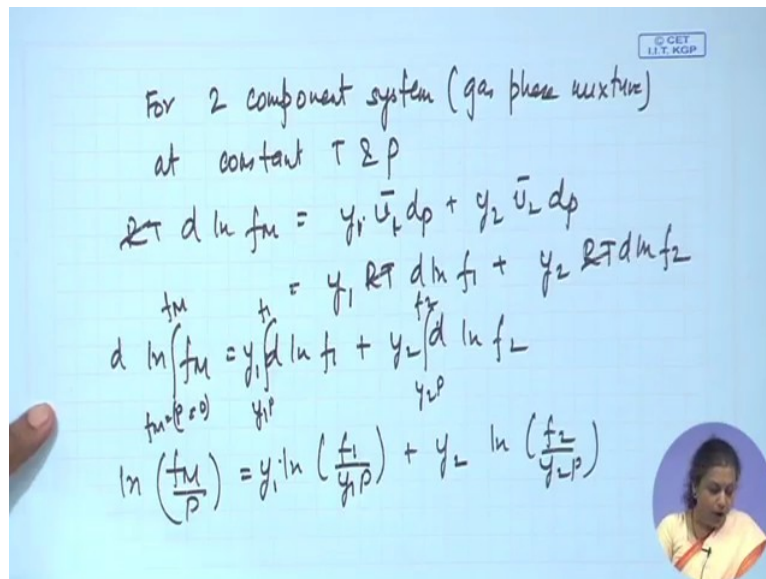 © CET
I.I.T. KGP
For 2 component system (gas phase mixture)
at constant T & P
RT d ln fM = y1 v̄1 dp + y2 v̄2 dp
= y1 RT d ln f1 + y2 RT d ln f2
fM f1 f2
d ln ∫ fM = y1 ∫ d ln f1 + y2 ∫ d ln f2
fM=(P=0) y1P y2P
ln (fM/P) = y1 ln (f1/y1P) + y2 ln (f2/y2P)